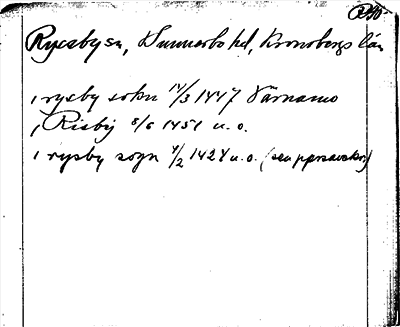 Ryssby sn, Sunnerbo hd, Kronobergs län
i rysby sokn 14/3 1447 Värnamo
i Risby 8/6 1451 u.o.
i rysby sogn 4/2 1424 u.o. (sen pprsavskr)